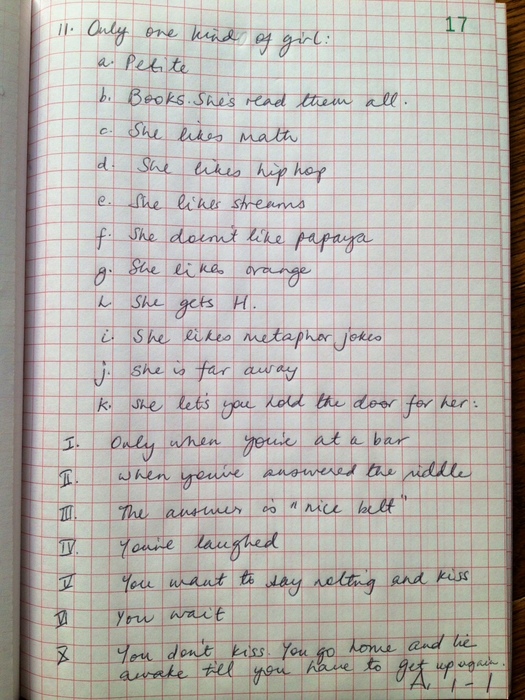 17
11. Only one kind of girl:
a. Petite
b. Books. She's read them all.
c. She likes math
d. She likes hip hop
e. She likes streams
f. She doesn't like papaya
g. She likes orange
h She gets H.
i. She likes metaphor jokes
j. She is far away
k. She let's you hold the door for her:
I. Only when you're at a bar
II. When you've answered the riddle
III. The answer is "nice belt"
IV. You've laughed
V You want to say nothing and kiss
VI You wait
X You don't kiss. You go home and lie
awake till you have to get up again.